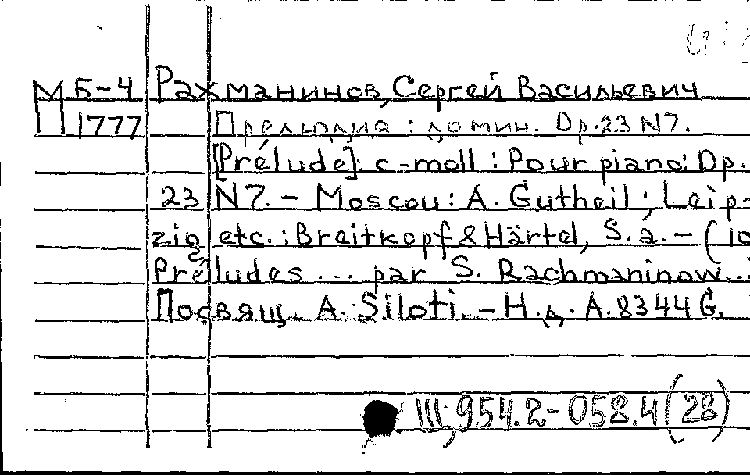 М Б-4 Рахманинов, Сергей Васильевич
П 1777 Прелюдия : до мин. Ор.23 N7.
[Prélude] c-moll : Pour piano: Op.
23 N7. - Moscou: A. Gutheil; Leip-
zig etc.: Breitkopf & Härtel, S.a. - (10
Préludes ... par S. Rachmaninow...
Посвящ. A. Siloti. - Н.д. A.8344G.
III, 954.2-058.4(28)